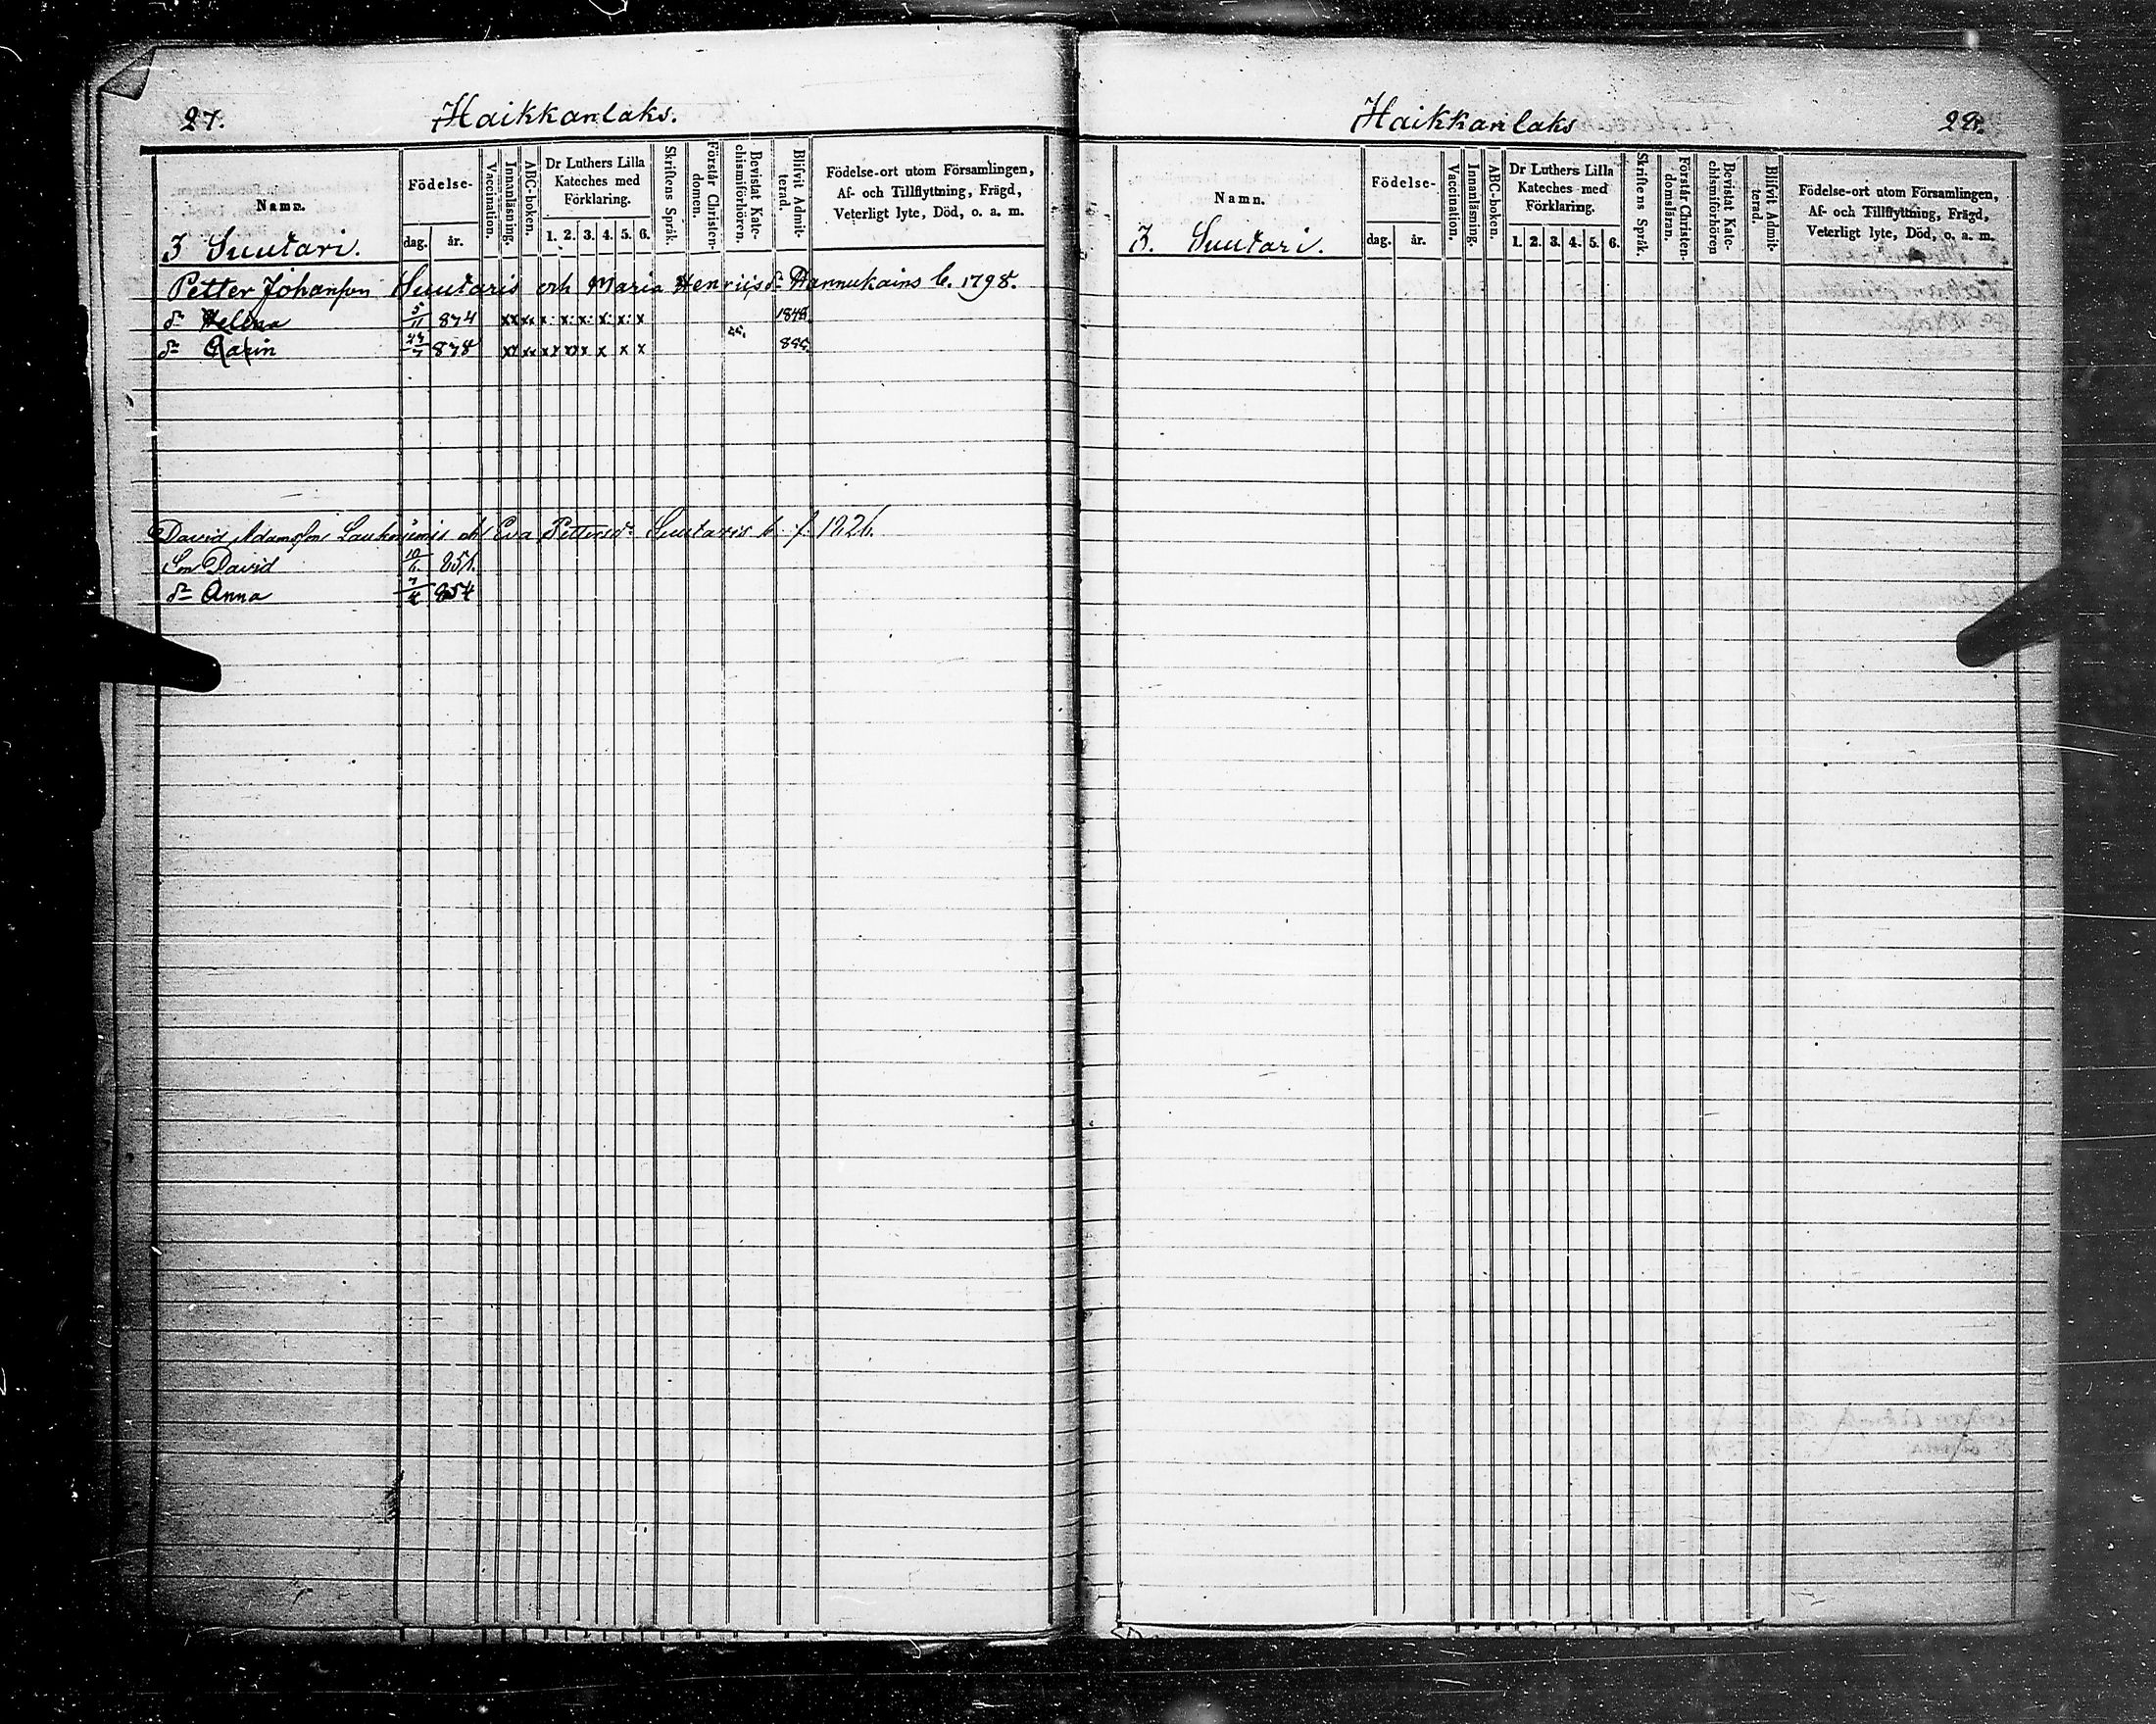 27. Haikkanlaks.
Namn.
Födelse-
dag. år.
Vaccination.
Innanläsning.
ABC-boken.
Dr Luthers Lilla
Kateches med
Förklaring.
1. 2. 3. 4. 5. 6.
Skriftens Språk.
Förstår Christen-
domen.
Bevistat Kate-
chismiförhören.
Blifvit Admit-
terad.
Födelse-ort utom Församlingen,
Af- och Tillflyttning, Frägd,
Veterligt lyte, Död, o. a. m.
3 Suutari.
Petter Johansson Suutaris och Maria Henricsdr Hannukains b. 1798.
dr Helena 5/11 834 xx xx x x x x x x 1848
dr Carin 838 xx xx xx x x x x
David Adamsson och Eva Pettersdr Suutaris b. f. 1826.
Son David 10/6 851.
dr Anna 7/4 854
Haikkanlaks 28.
Namn.
Födelse-
dag. år.
Vaccination.
Innanläsning.
ABC-boken.
Dr Luthers Lilla
Kateches med
Förklaring.
1. 2. 3. 4. 5. 6.
Skriftens Språk.
Förstår Christen-
domsläran.
Bevistat Kate-
chismiförhören
Blifvit Admit-
terad.
Födelse-ort utom Församlingen,
Af- och Tillflyttning, Frägd,
Veterligt lyte, Död, o. a. m.
3. Suutari.